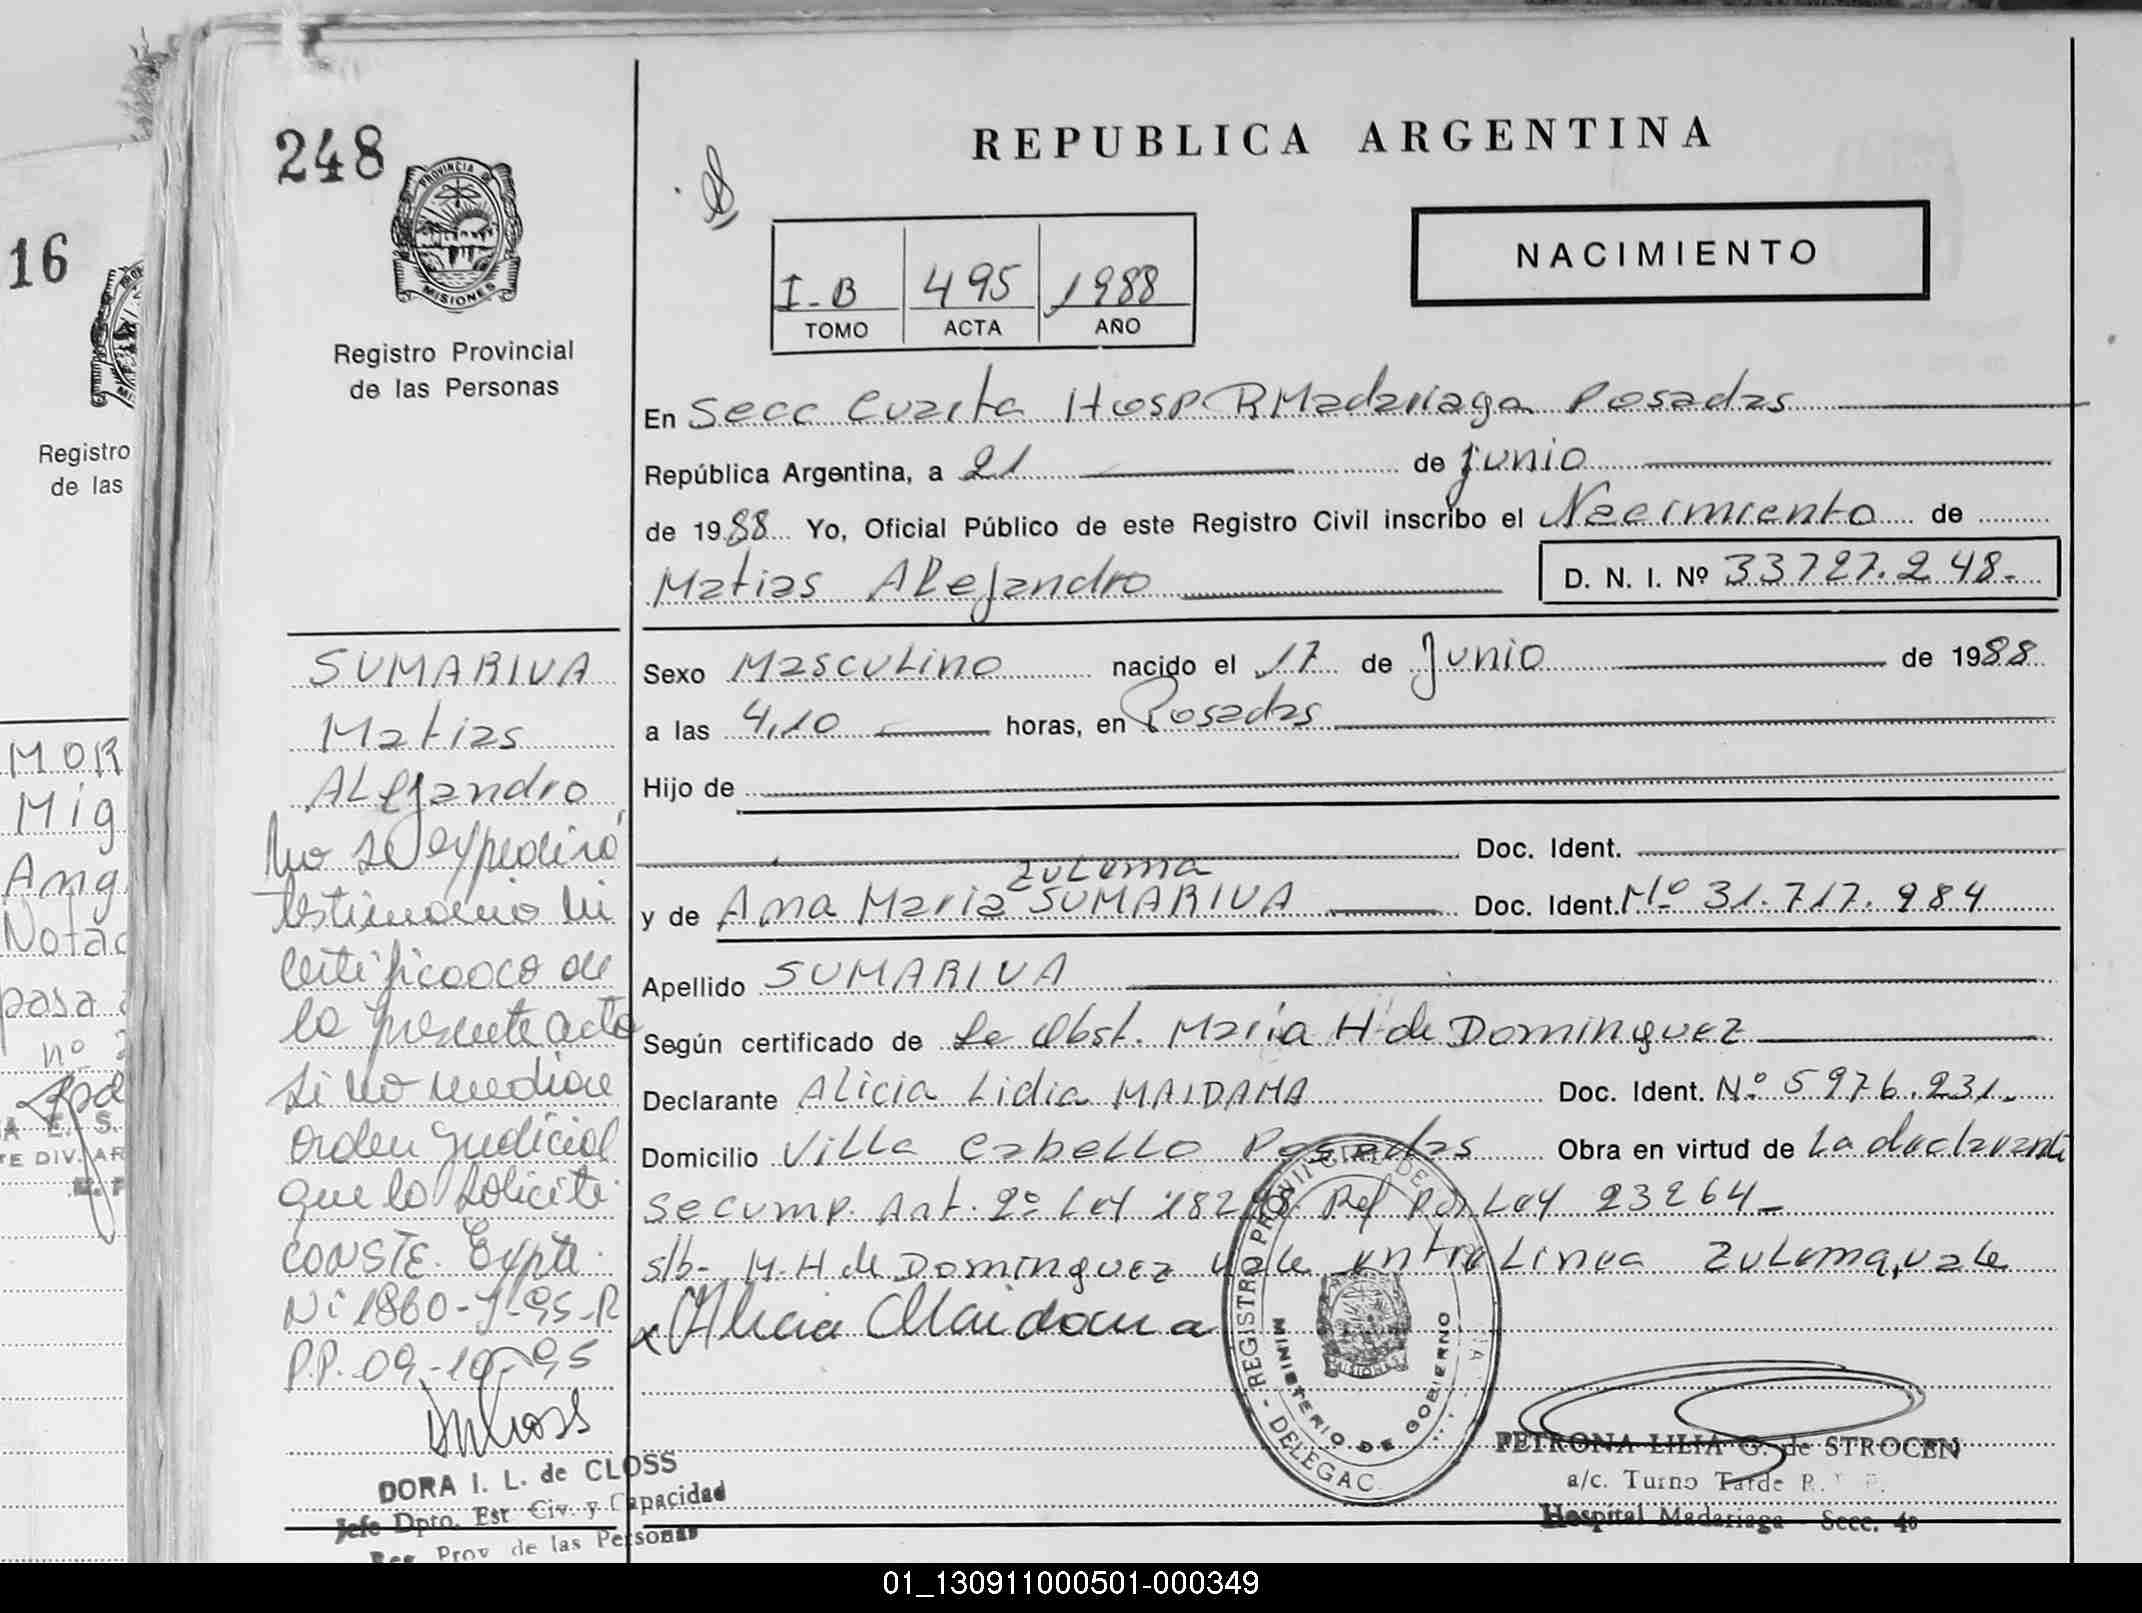 248
PROVINCIA DE
MISIONES
Registro Provincial
de las Personas
REPUBLICA ARGENTINA
NACIMIENTO
I-B 495 1988
TOMO ACTA AÑO
En Secc Cuarta Hosp R Madariaga Posadas
República Argentina, a 21 de junio
de 1988 Yo, Oficial Público de este Registro Civil inscribo el Nacimiento de
Matias Alejandro D. N. I. Nº 33727.248-
Sexo Masculino nacido el 17 de Junio de 1988
a las 4,10 horas, en Posadas
Hijo de
Doc. Ident.
Zulema
y de Ana Maria SUMARIVA Doc. Ident. Nº 31.717.984
Apellido SUMARIVA
Según certificado de La Obst. Maria H de Dominguez
Declarante Alicia Lidia MAIDANA Doc. Ident. Nº 5976.231.
Domicilio Villa Cabello Posadas Obra en virtud de La declarante
se cump. Art. 2º Ley 18248 Ref por Ley 23264-
s/b- M.H de Dominguez Vale entre Linea Zulema, vale
x Alicia Maidana
SUMARIVA
Matias
Alejandro
No se expedirá
testimonio ni
certificado de
la presente acta
si no mediare
orden judicial
que lo solicite.
CONSTE. Expte.
Nº 1860-J-95-R
P.P. 09-10-95
DORA I. L. de CLOSS
Jefe Dpto. Est Civ. y Capacidad
Reg. Prov de las Personas
REGISTRO PROVINCIAL DE
MINISTERIO DE GOBIERNO
MISIONES
DELEGAC
PETRONA LILIA G. de STROCEN
a/c. Turno Tarde R.
Hospital Madariaga - Secc. 4º
16
Registro
de las
MOR
Mig
Ang
Notac
pasa
nº
A E. S.
TE DIV. AR
01_130911000501-000349